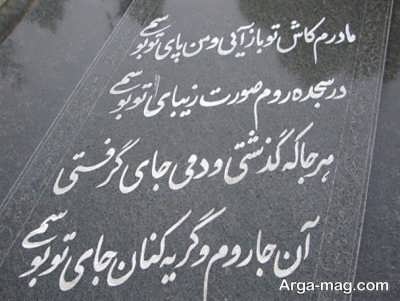 مادرم کاش تو باز آیی و من پای تو بوسمی
در سجده روم صورت زیبای تو بوسمی
هر جا که گذشتی و دمی جای گرفستی
آن جا روم و گریه کنان جای تو بوسمی
Arga-mag.com